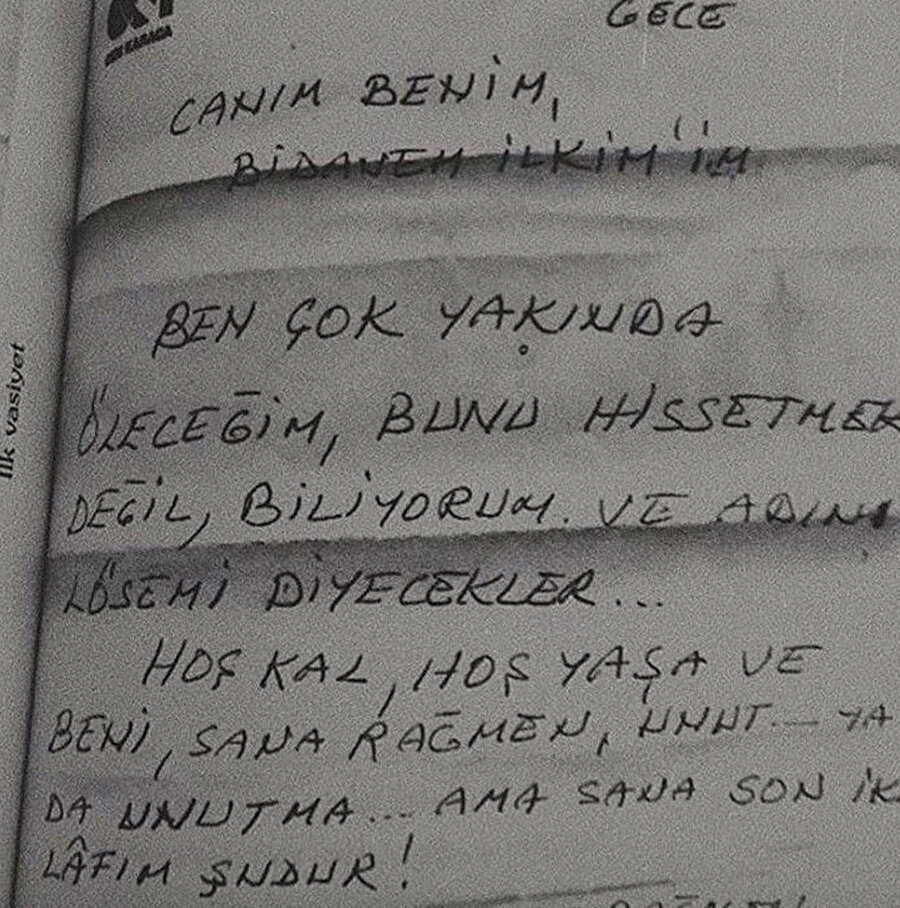 GECE
CANIM BENİM,
BİDANEM İLKİM'İM
BEN ÇOK YAKINDA
ÖLECEĞİM, BUNU HİSSETMEK
DEĞİL, BİLİYORUM. VE ADINI
LÖSEMİ DİYECEKLER...
HOŞ KAL, HOŞ YAŞA VE
BENİ, SANA RAĞMEN, UNUT... YA
DA UNUTMA... AMA SANA SON İK
LÂFIM ŞUDUR!
İlk vasiyet